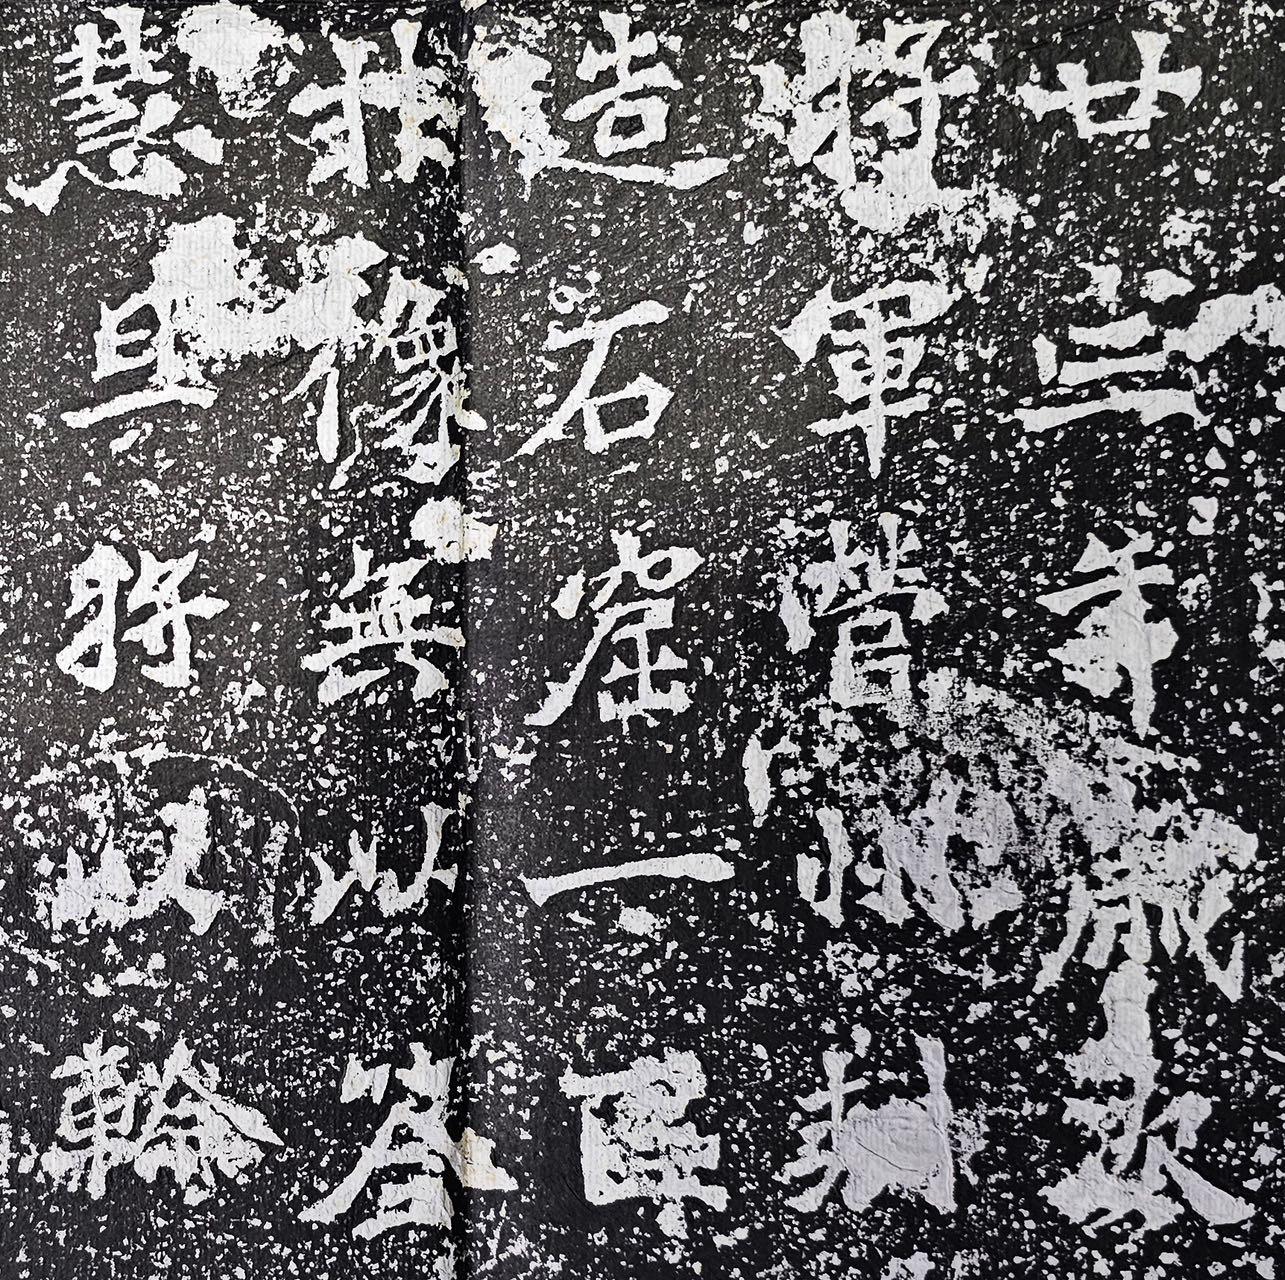 廿三年歲次
將軍營州刺
造石窟一區
像無以答
慧且將輪